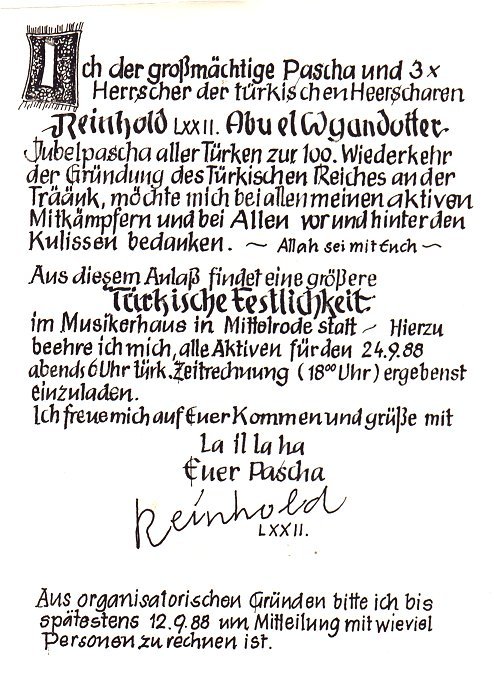 Ich der großmächtige Pascha und 3x
Herrscher der türkischen Heerscharen
Reinhold LXXII. Abu el Wyandotter
Jubelpascha aller Türken zur 100. Wiederkehr
der Gründung des Türkischen Reiches an der
Träänk, möchte mich bei allen meinen aktiven
Mitkämpfern und bei Allen vor und hinter den
Kulissen bedanken. ~ Allah sei mit Euch ~
Aus diesem Anlaß findet eine größere
Türkische Festlichkeit
im Musikerhaus in Mittelrode statt ~ Hierzu
beehre ich mich, alle Aktiven für den 24.9.88
abends 6 Uhr türk. Zeitrechnung (18⁰⁰ Uhr) ergebenst
einzuladen.
Ich freue mich auf Euer Kommen und grüße mit
La il la ha
Euer Pascha
Reinhold
LXXII.
Aus organisatorischen Gründen bitte ich bis
spätestens 12.9.88 um Mitteilung mit wieviel
Personen zu rechnen ist.